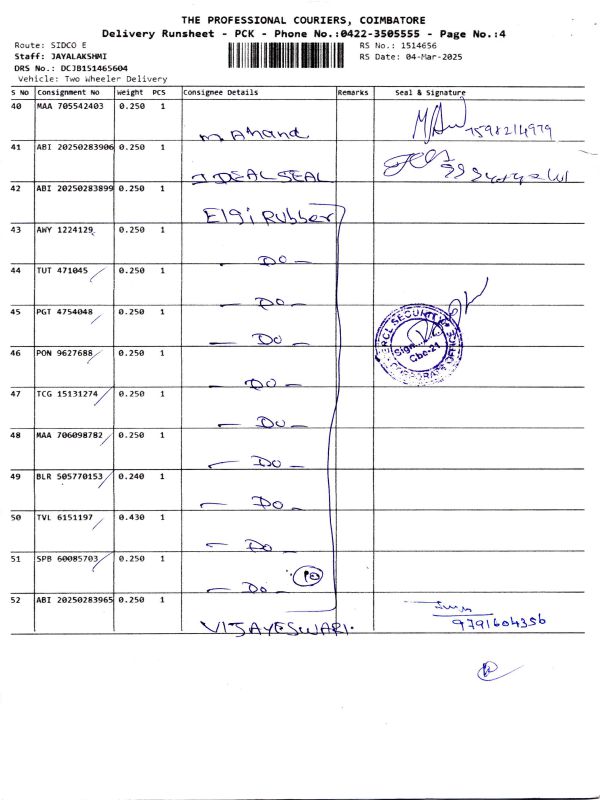 THE PROFESSIONAL COURIERS, COIMBATORE
Delivery Runsheet - PCK - Phone No.:0422-3505555 - Page No.:4
Route: SIDCO E
RS No.: 1514656
Staff: JAYALAKSHMI
RS Date: 04-Mar-2025
DRS No.: DCJB151465604
Vehicle: Two Wheeler Delivery
S No Consignment No Weight PCS Consignee Details Remarks Seal & Signature
40 MAA 705542403 0.250 1
M Anand
41 ABI 20250283906 0.250 1
IDEAL SEAL
42 ABI 20250283899 0.250 1
Elgi Rubber
43 AWY 1224129 0.250 1
— DO —
44 TUT 471045 0.250 1
— DO —
45 PGT 4754048 0.250 1
— DO —
46 PON 9627688 0.250 1
— DO —
47 TCG 15131274 0.250 1
— DO —
48 MAA 706098782 0.250 1
— DO —
49 BLR 505770153 0.240 1
— DO —
50 TVL 6151197 0.430 1
— DO —
51 SPB 60085703 0.250 1
— Do —
52 ABI 20250283965 0.250 1
VIJAYESWARI.
9791604356